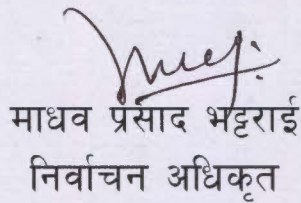 माधव प्रसाद भट्टराई
निर्वाचन अधिकृत